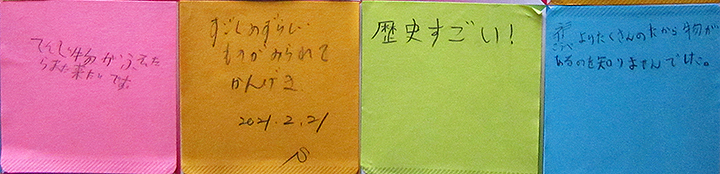 てんじ物がふえた
らまた来たいです。
すごしめずらしい
ものがみられて
かんげき
2021.2.21
歴史すごい！
よりたくさんのたから物が
あるのを知りませんでした。